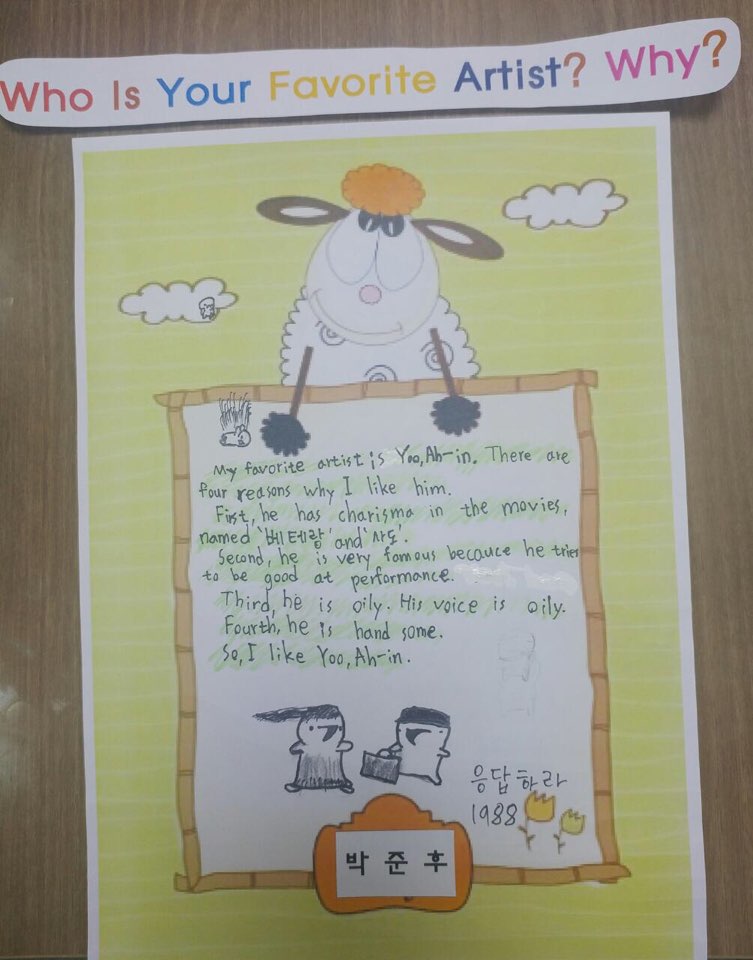 Who Is Your Favorite Artist? Why?
My favorite artist is Yoo, Ah-in. There are
four reasons why I like him.
First, he has charisma in the movies,
named '베테랑' and '사도'.
Second, he is very famous becauce he tries
to be good at performance.
Third, he is oily. His voice is oily.
Fourth, he is hand some.
So, I like Yoo, Ah-in.
응답하라
1988
박준후